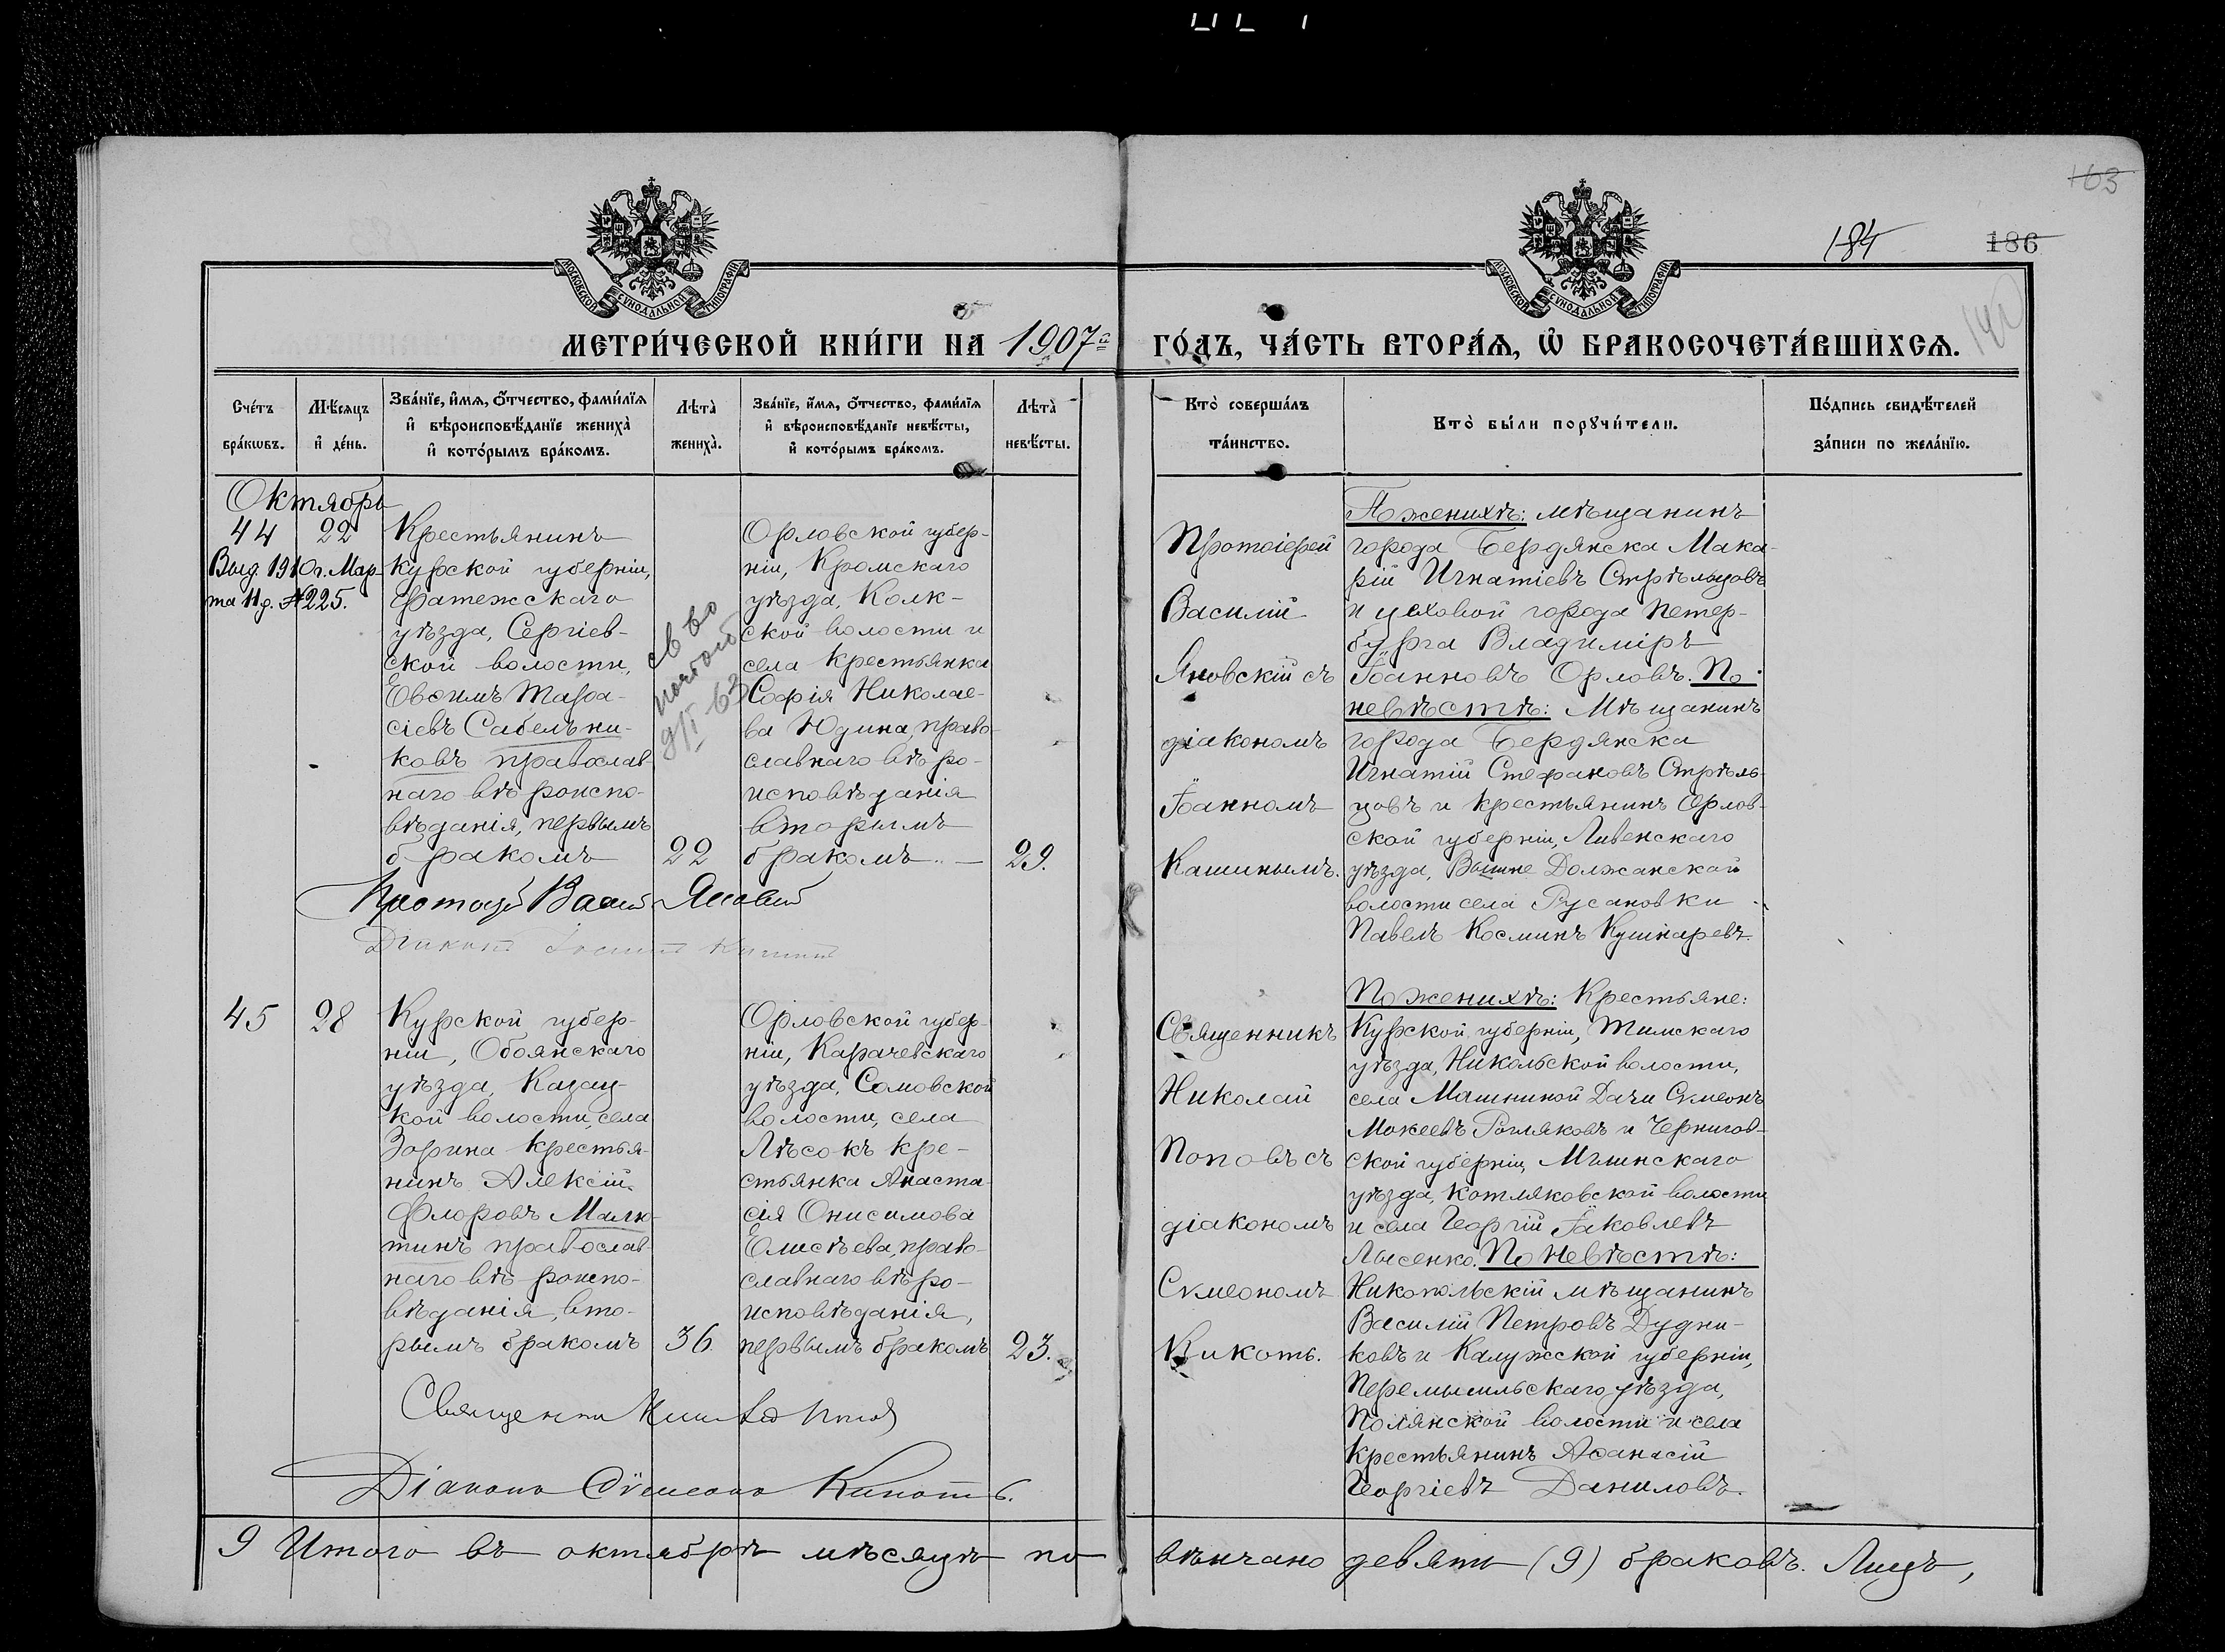 163
184
186
140
МОСКОВСКОЙ СѴНОДАЛЬНОЙ ТИПОГРАФІИ
МОСКОВСКОЙ СѴНОДАЛЬНОЙ ТИПОГРАФІИ
МЕТРИ́ЧЕСКОЙ КНИ́ГИ НА 1907й ГО́ДЪ, ЧА́СТЬ ВТОРА́Ѧ, Ѡ҆ БРАКОСОЧЕТА́ВШИХСѦ.
Сче́тъ бра́кѡвъ.
Мѣ́сяцъ и҆ де́нь.
Зва́нїе, и҆́мѧ, ѻ҆́тчество, фами́лїѧ и҆ вѣроисповѣ́данїе жениха̀ и҆ кото́рымъ бра́комъ.
Лѣта̀ жениха̀.
Зва́нїе, и҆́мѧ, ѻ҆́тчество, фами́лїѧ и҆ вѣроисповѣ́данїе невѣ́сты, и҆ кото́рымъ бра́комъ.
Лѣта̀ невѣ́сты.
Кто̀ соверша́лъ та́инство.
Кто̀ бы́ли порꙋчи́тели.
По́дпись свидѣ́телей за́писи по жела́нїю.
Октябрь
44
22
Выд. 1910 г. Мар-
та 11 д. №225.
Крестьянинъ
Курской губерніи,
Фатежскаго
уѣзда, Сергіев-
ской волости,
Евѳимъ Тара-
сіевъ Сабельни-
ковъ православ-
наго вѣроиспо-
вѣданія, первымъ
бракомъ
22
св во
почтой
9/I 63
Орловской губер-
ніи, Кромскаго
уѣзда, Колк-
ской волости и
села крестьянка
Софія Николае-
ва Юдина, право-
славнаго вѣро-
исповѣданія
вторымъ
бракомъ. —
29.
Протоіерей
Василій
Яновскій съ
діакономъ
Іоанномъ
Кашинымъ.
По женихѣ: мѣщанинъ
города Бердянска Мака-
рій Игнатіевъ Стрѣльцовъ
и цеховой города Петер-
бурга Владиміръ
Іоанновъ Орловъ. По
невѣстѣ: Мѣщанинъ
города Бердянска
Игнатій Стефановъ Стрѣль-
цовъ и крестьянинъ Орлов-
ской губерніи, Ливенскаго
уѣзда, Вышне Должанской
волости села Русановки
Павелъ Косминъ Кушнаревъ.
Протоіерей Василій Яновскій
Діаконъ Іоаннъ Кашинъ
45
28
Курской губер-
ніи, Обоянскаго
уѣзда, Казац-
кой волости, села
Зорина крестья-
нинъ Алексій
Флоровъ Малю-
тинъ православ-
наго вѣроиспо-
вѣданія, вто-
рымъ бракомъ
36.
Орловской губер-
ніи, Карачевскаго
уѣзда, Самовской
волости, села
Лѣсокъ кре-
стьянка Анаста-
сія Онисимова
Елисѣева, право-
славнаго вѣро-
исповѣданія,
первымъ бракомъ
23.
Священникъ
Николай
Поповъ съ
діакономъ
Сѵмеономъ
Кикоть.
По женихѣ: Крестьяне:
Курской губерніи, Тимскаго
уѣзда, Никольской волости,
села Машниной Дачи Сѵмеонъ
Мокеевъ Рогляковъ и Чернигов-
ской губерніи, Мглинскаго
уѣзда, Котляковской волости
и села Георгій Іаковлевъ
Лысенко. По невѣстѣ:
Никопольскій мѣщанинъ
Василій Петровъ Дудни-
ковъ и Калужской губерніи,
Перемышльскаго уѣзда,
Полянской волости и села
крестьянинъ Аѳанасій
Георгіевъ Даниловъ.
Священникъ Николай Поповъ
Діаконъ Сѵмеонъ Кикоть.
9 Итого въ октябрѣ мѣсяцѣ по вѣнчано девять (9) браковъ. Лицъ,